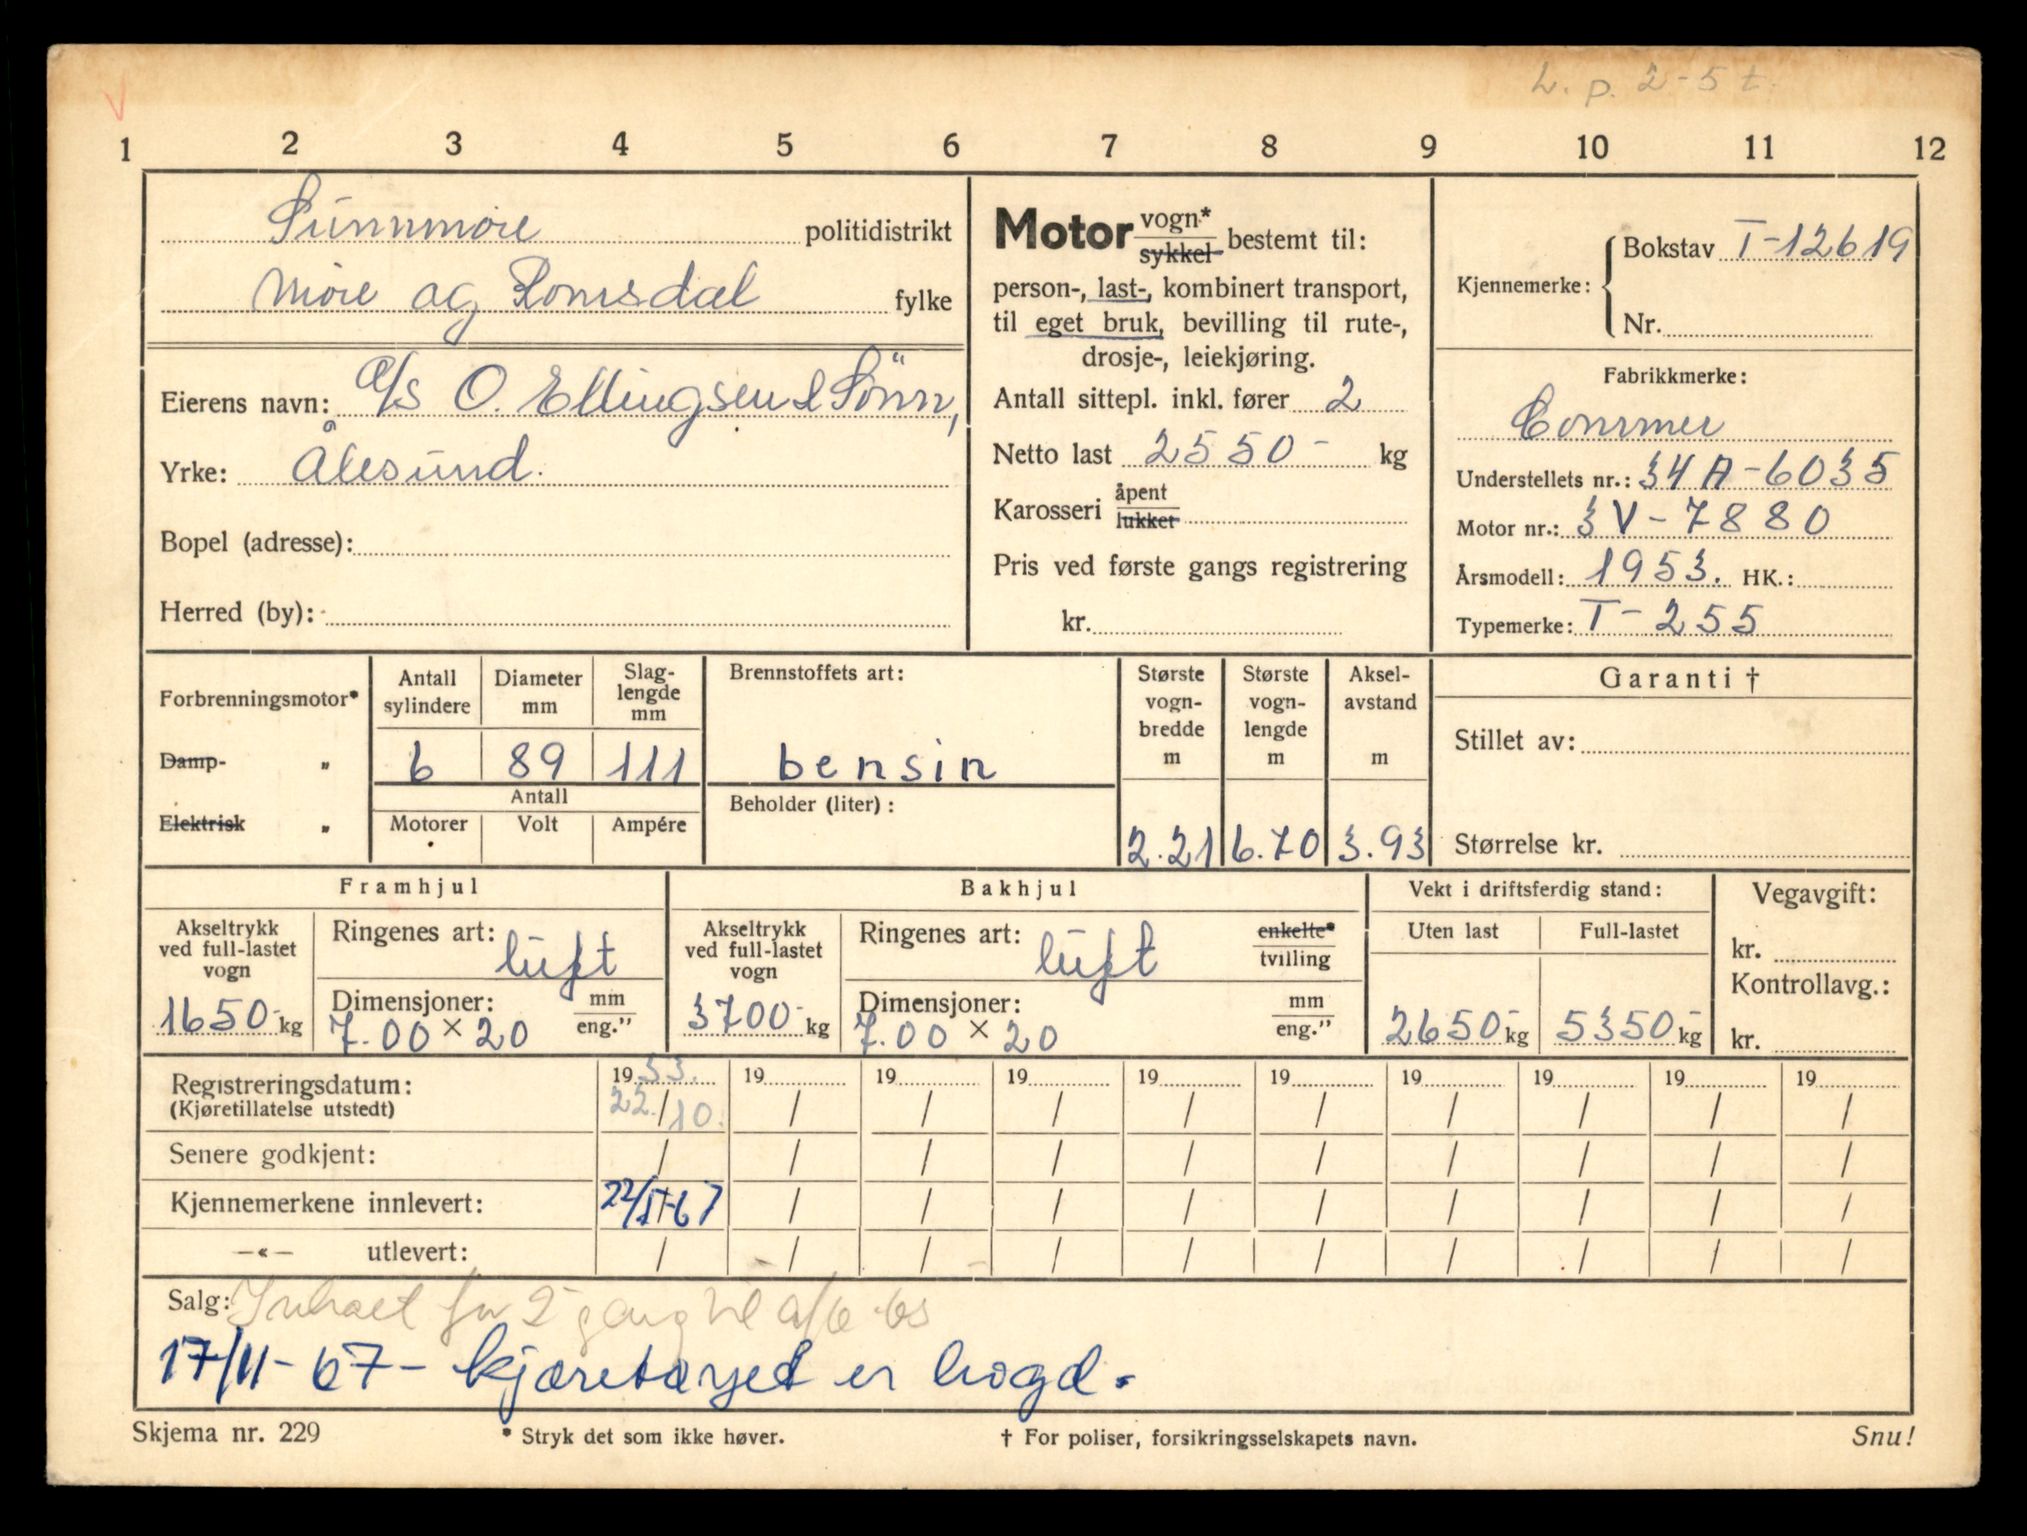 L. p. 2-5 t.
1 2 3 4 5 6 7 8 9 10 11 12
Sunnmøre politidistrikt
Møre og Romsdal fylke
Eierens navn: A/S O. Ellingsen & Sönn,
Yrke: Ålesund.
Bopel (adresse):
Herred (by):
Motor vogn* sykkel bestemt til:
person-, last-, kombinert transport,
til eget bruk, bevilling til rute-,
drosje-, leiekjøring.
Antall sittepl. inkl. fører 2
Netto last 2550- kg
Karosseri åpent lukket
Pris ved første gangs registrering
kr.
Kjennemerke: Bokstav T-12619
Nr.
Fabrikkmerke:
Commer
Understellets nr.: 34A-6035
Motor nr.: 3V-7880
Årsmodell: 1953. HK.:
Typemerke: T-255
Forbrenningsmotor*
Damp- "
Elektrisk "
Antall sylindere
6
Diameter mm
89
Slag-lengde mm
111
Antall
Motorer Volt Ampére
Brennstoffets art:
bensin
Beholder (liter):
Største vogn-bredde m
2.21
Største vogn-lengde m
6.70
Aksel-avstand m
3.93
Garanti †
Stillet av:
Størrelse kr.
Framhjul
Akseltrykk ved full-lastet vogn
1650- kg
Ringenes art: luft
Dimensjoner: mm eng."
7.00 × 20
Bakhjul
Akseltrykk ved full-lastet vogn
3700- kg
Ringenes art: luft enkelte* tvilling
Dimensjoner: mm eng."
7.00 × 20
Vekt i driftsferdig stand:
Uten last Full-lastet
2650- kg 5350- kg
Vegavgift:
kr.
Kontrollavg.:
kr.
Registreringsdatum: 1953. 19 19 19 19 19 19 19 19 19
(Kjøretillatelse utstedt) 22./10. / / / / / / / / /
Senere godkjent: / / / / / / / / / /
Kjennemerkene innlevert: 22/11-67 / / / / / / / / /
—«— utlevert: / / / / / / / / / /
Salg: 2 gang til
17/11-67- kjøretøyet er hogd.
Skjema nr. 229 * Stryk det som ikke høver. † For poliser, forsikringsselskapets navn. Snu!